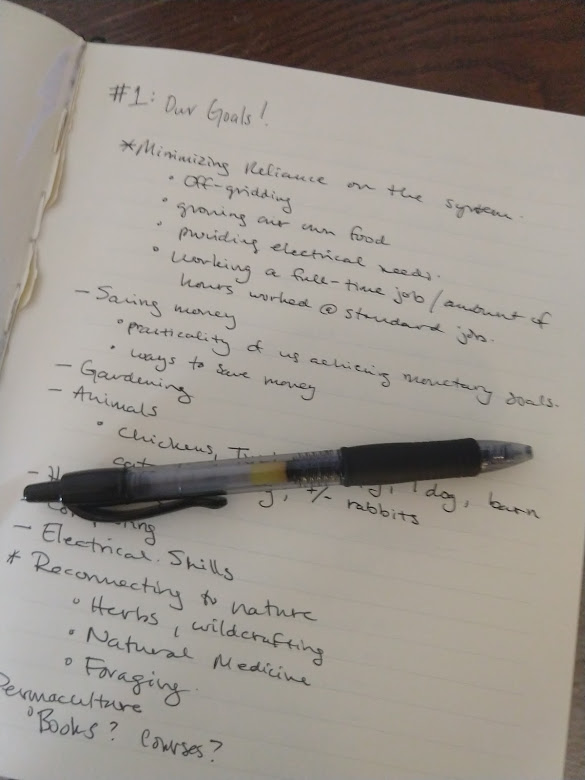 #1: Our Goals!
* Minimizing Reliance on the system.
• Off-gridding
• growing our own food
• providing electrical needs.
• Working a full-time job/amount of
hours worked @ standard job.
- Saving money
• practicality of us achieving monetary goals.
• ways to save money
- Gardening
- Animals
• Chickens,
1 dog, barn
+/- rabbits
- Electrical Skills
* Reconnecting to nature
• Herbs, wildcrafting
• Natural Medicine
• Foraging.
Permaculture
• Books? Courses?